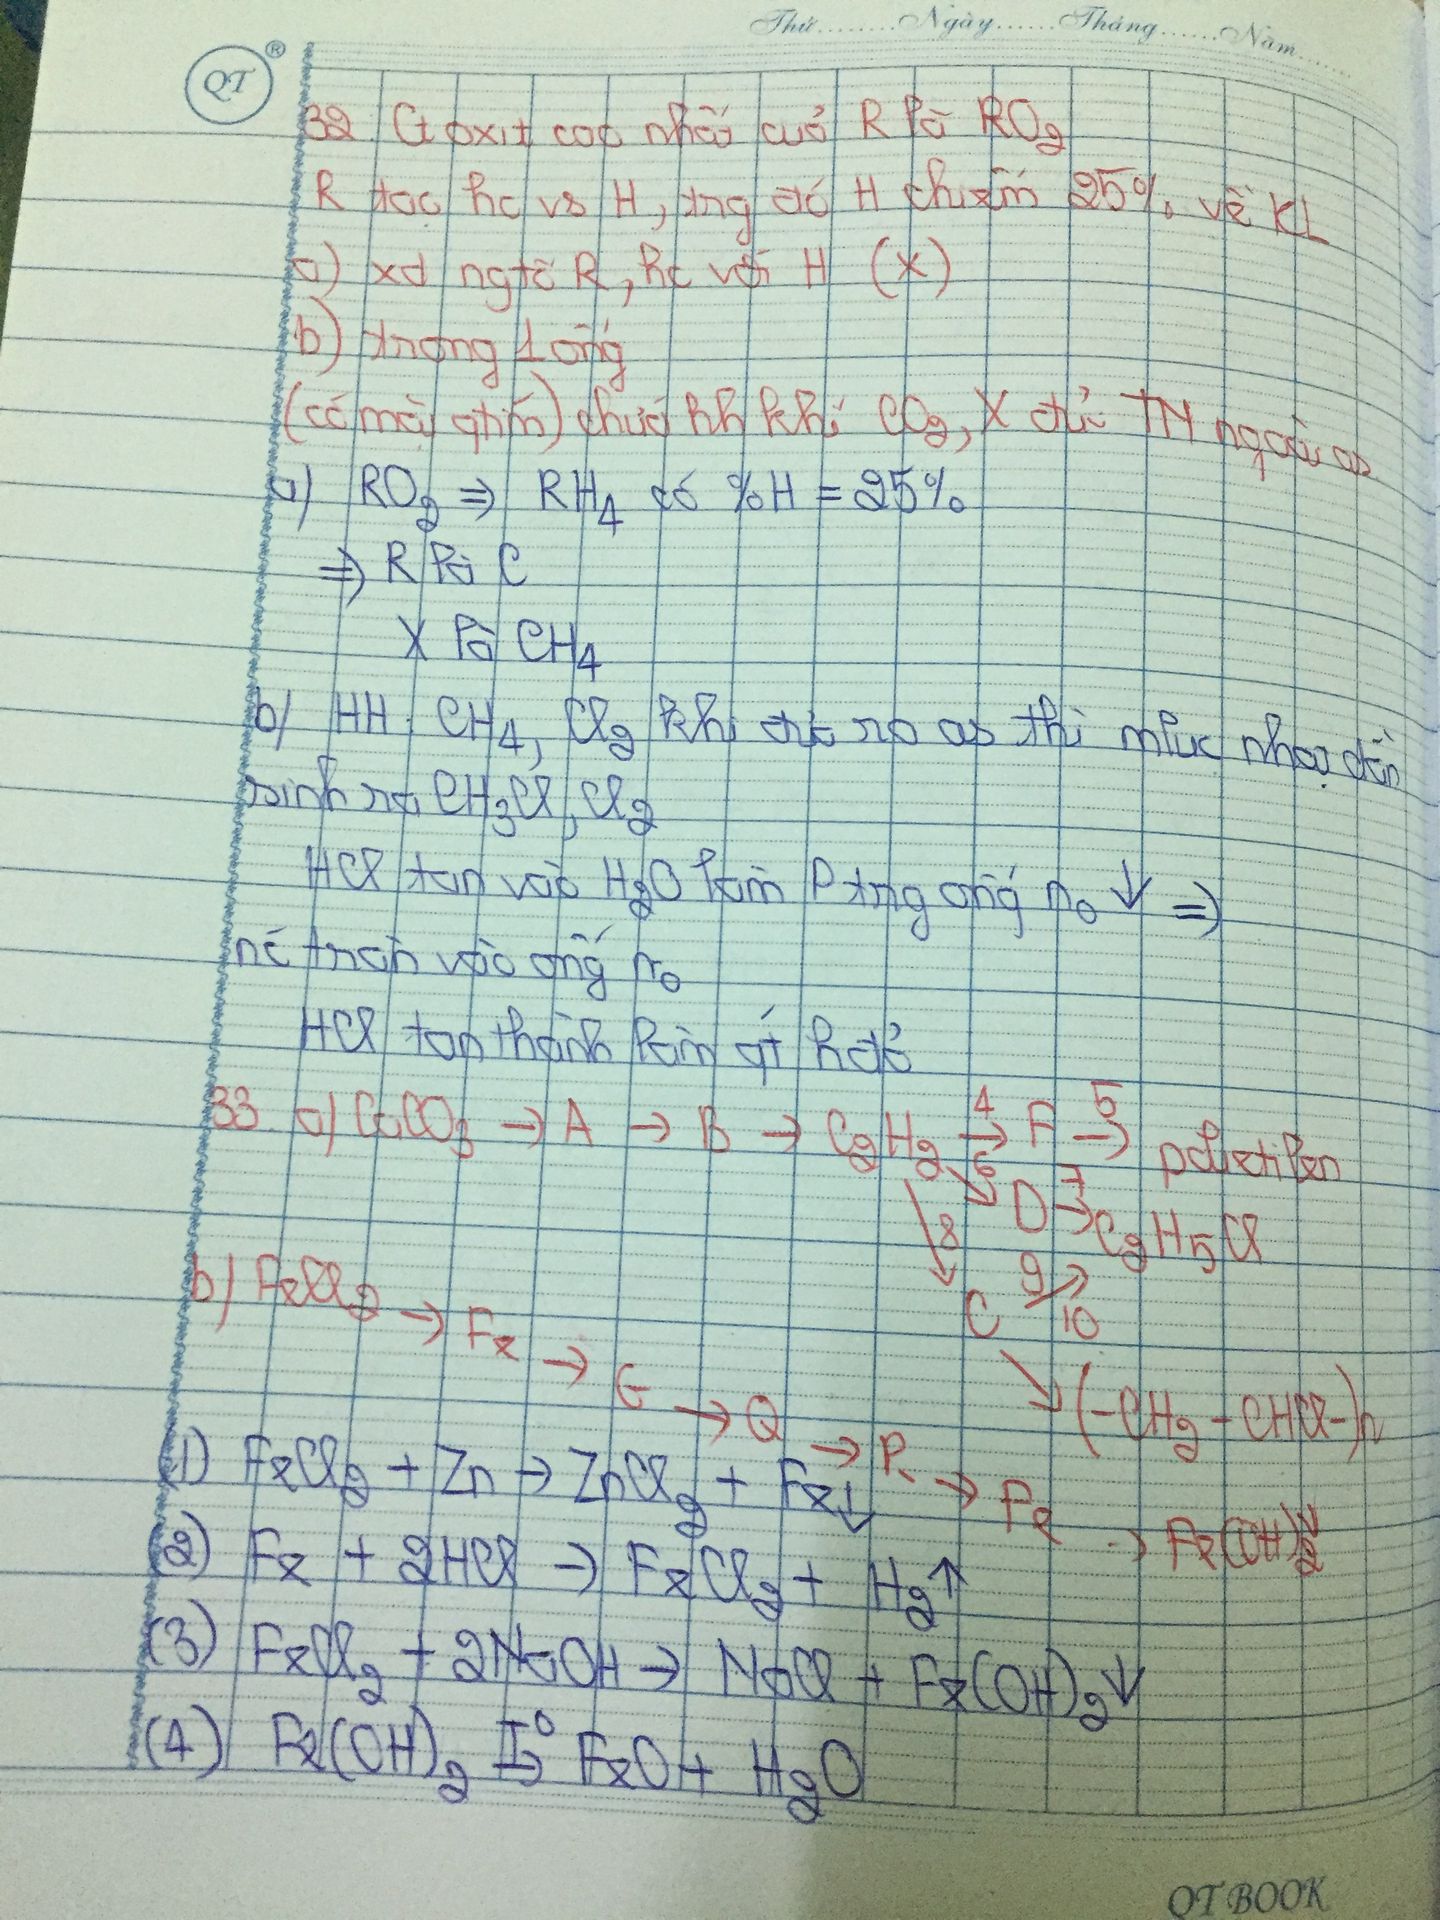 Thứ........Ngày......Tháng......Năm......
QT ®
32 Ct oxit cao nhất của R là RO2
R tác hc vs H, trg đó H chiếm 25% về KL
a) xđ ngtố R, hc với H (X)
b) trong 1 ống
(có mài qtím) chứa hh khí CO2, X để TN ngoài as
a) RO2 ⇒ RH4 có %H = 25%
⇒ R là C
X là CH4
b/ HH CH4, Cl2 khi để ra as thì màu nhạt dần
sinh ra CH3Cl, Cl2
HCl tan vào H2O làm P trg ống no ↓ ⇒
nc tràn vào ống no
HCl tạo thành làm qt hđỏ
33 a) CaCO3 → A → B → C2H2 4→ F 5→ polietilen
6→ D 7→ C2H5Cl
8→ C 9→
10→ (-CH2-CHCl-)n
b) FeCl2 → Fe → G → Q → R → Fe → Fe(OH)2
(1) FeCl2 + Zn → ZnCl2 + Fe↓
(2) Fe + 2HCl → FeCl2 + H2↑
(3) FeCl2 + 2NaOH → NaCl + Fe(OH)2↓
(4) Fe(OH)2 t°→ FeO + H2O
QT BOOK